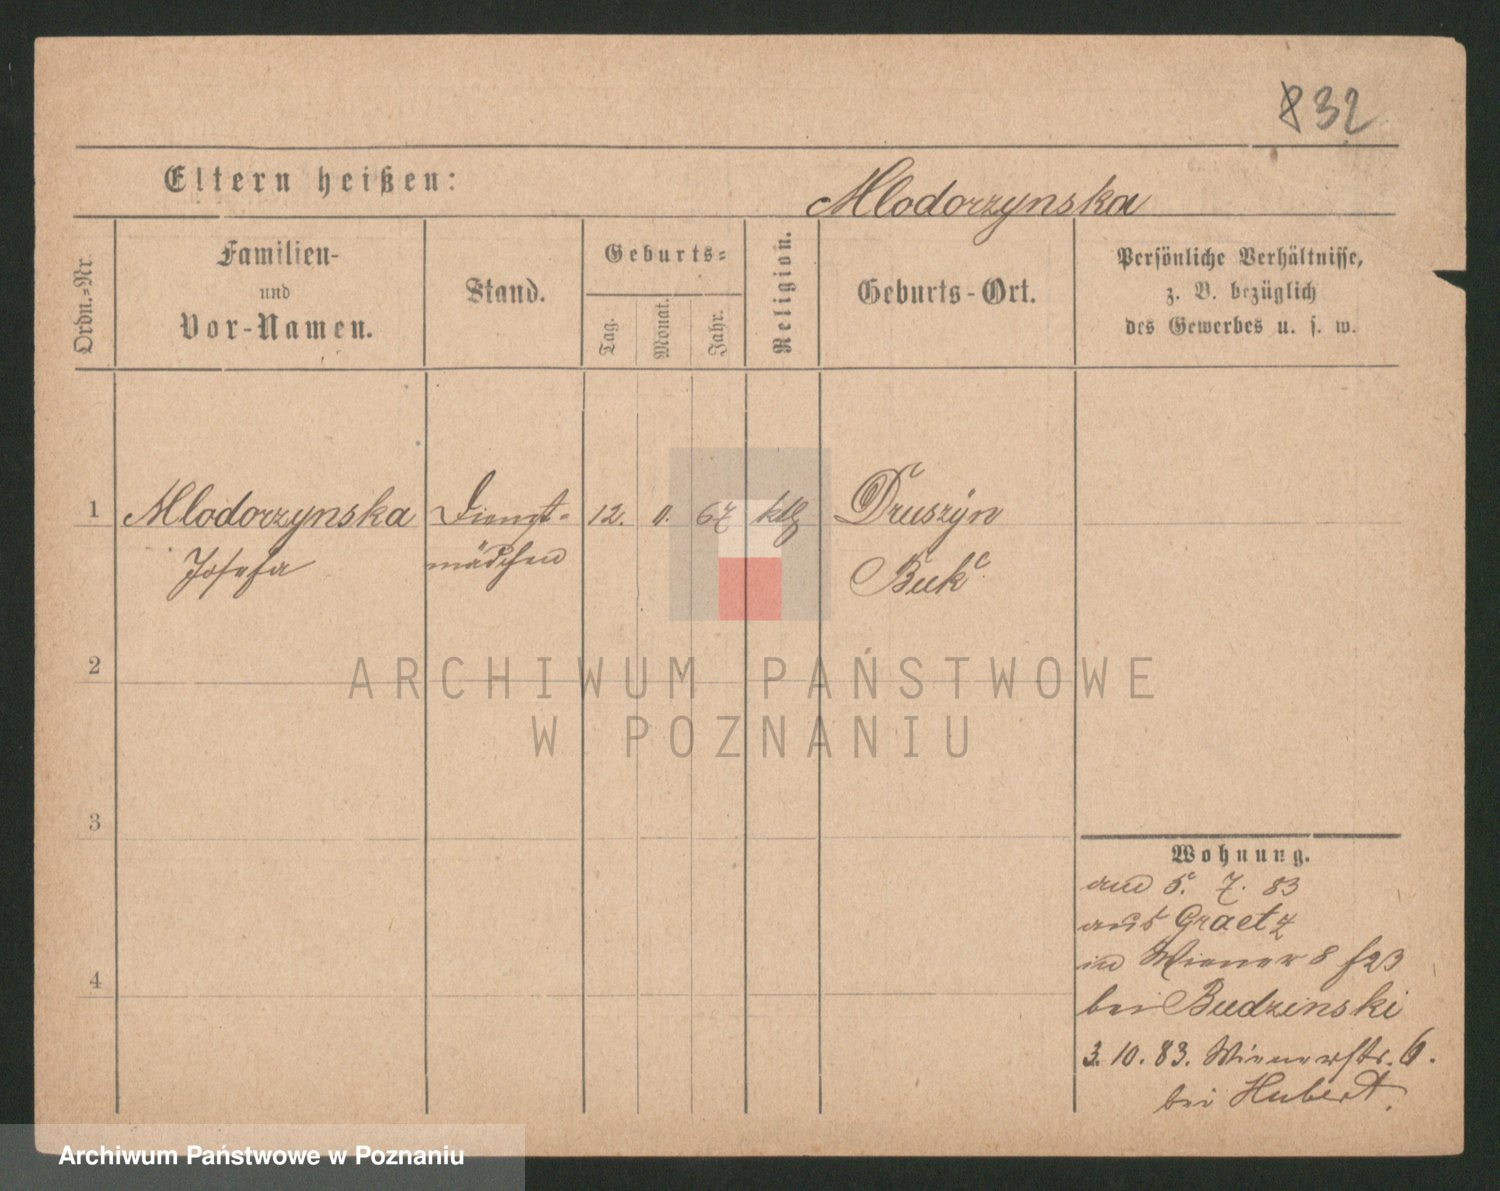 832
Eltern heißen:
Mlodorzynska
Ordn.-Nr.
Familien-
und
Vor-Namen.
Stand.
Geburts-
Tag.
Monat.
Jahr.
Religion.
Geburts-Ort.
Persönliche Verhältnisse,
z. B. bezüglich
des Gewerbes u. s. w.
1 Mlodorzynska Dienst- 12. 11. 67 kth Druszyn
Josefa mädchen Buk
2
ARCHIWUM PAŃSTWOWE
W POZNANIU
3
Wohnung.
am 5. 7. 83
aus Graetz
in Wiener 8
bei Budzinski
4
3. 10. 83. Wienerstr. 6.
bei Hubert.
Archiwum Państwowe w Poznaniu